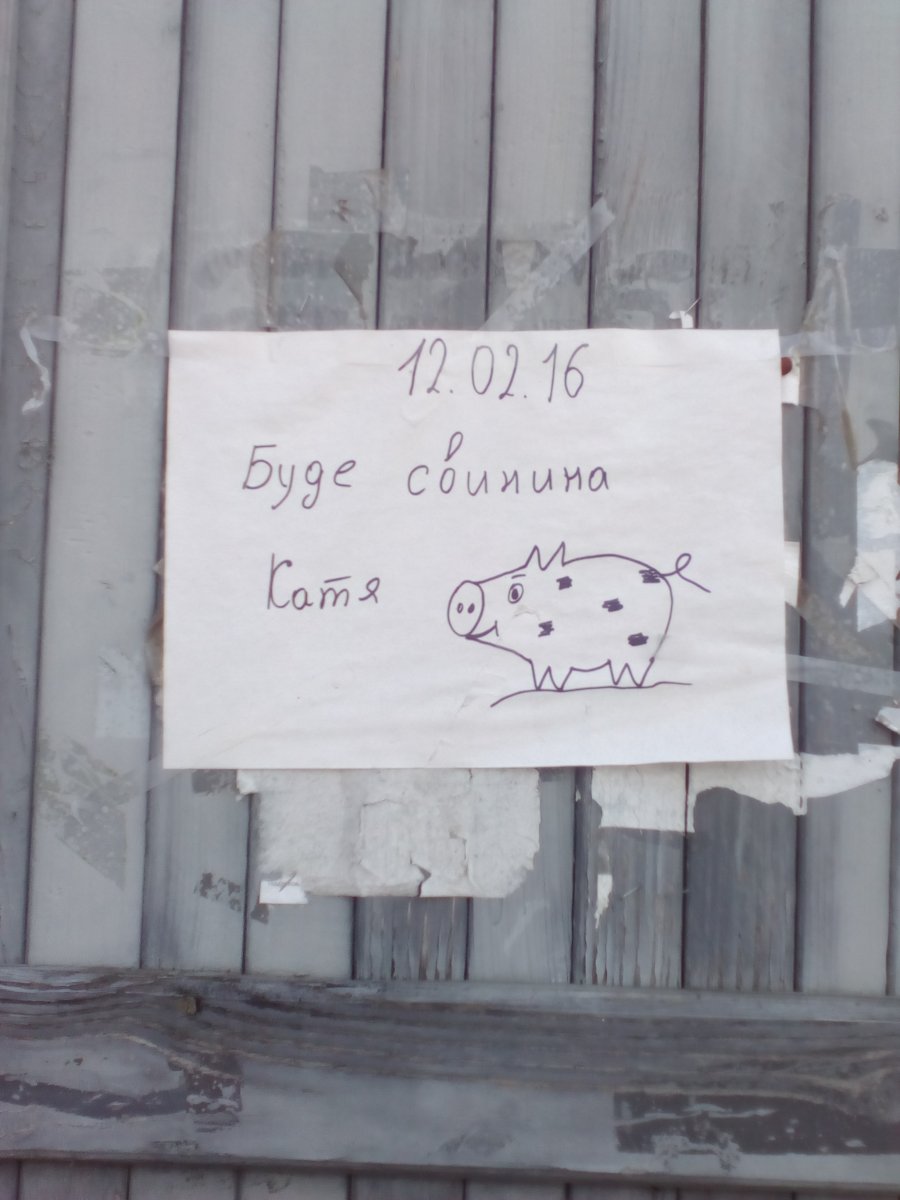 12.02.16
Буде свинина
Катя